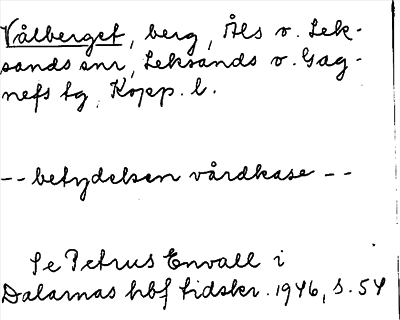 Vålberget, berg, Åls o. Lek-
sands snr, Leksands o. Gag-
nefs tg, Kopp. l.
-- betydelsen vårdkase --
Se Petrus Envall i
Dalarnas hbf tidskr. 1946, s. 54